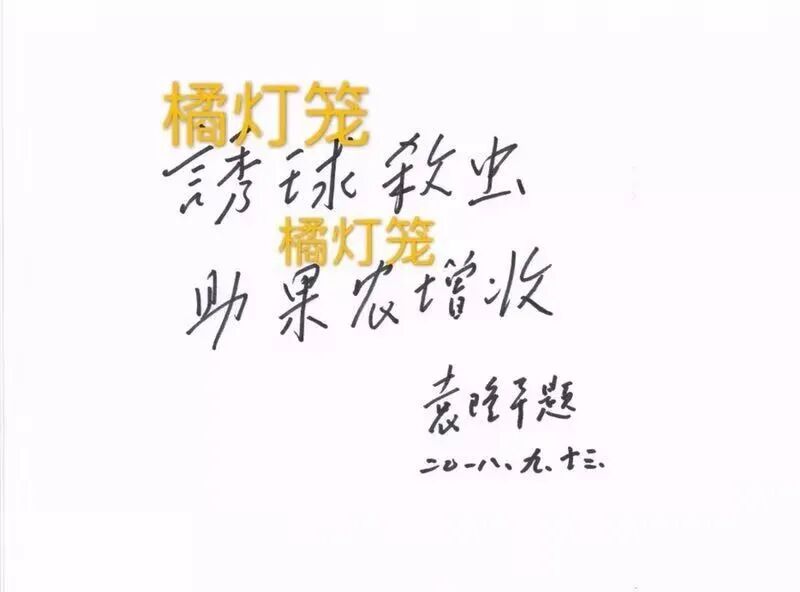 橘灯笼
誘球殺虫
橘灯笼
助果农增收
袁隆平题
二〇一八、九、十三.